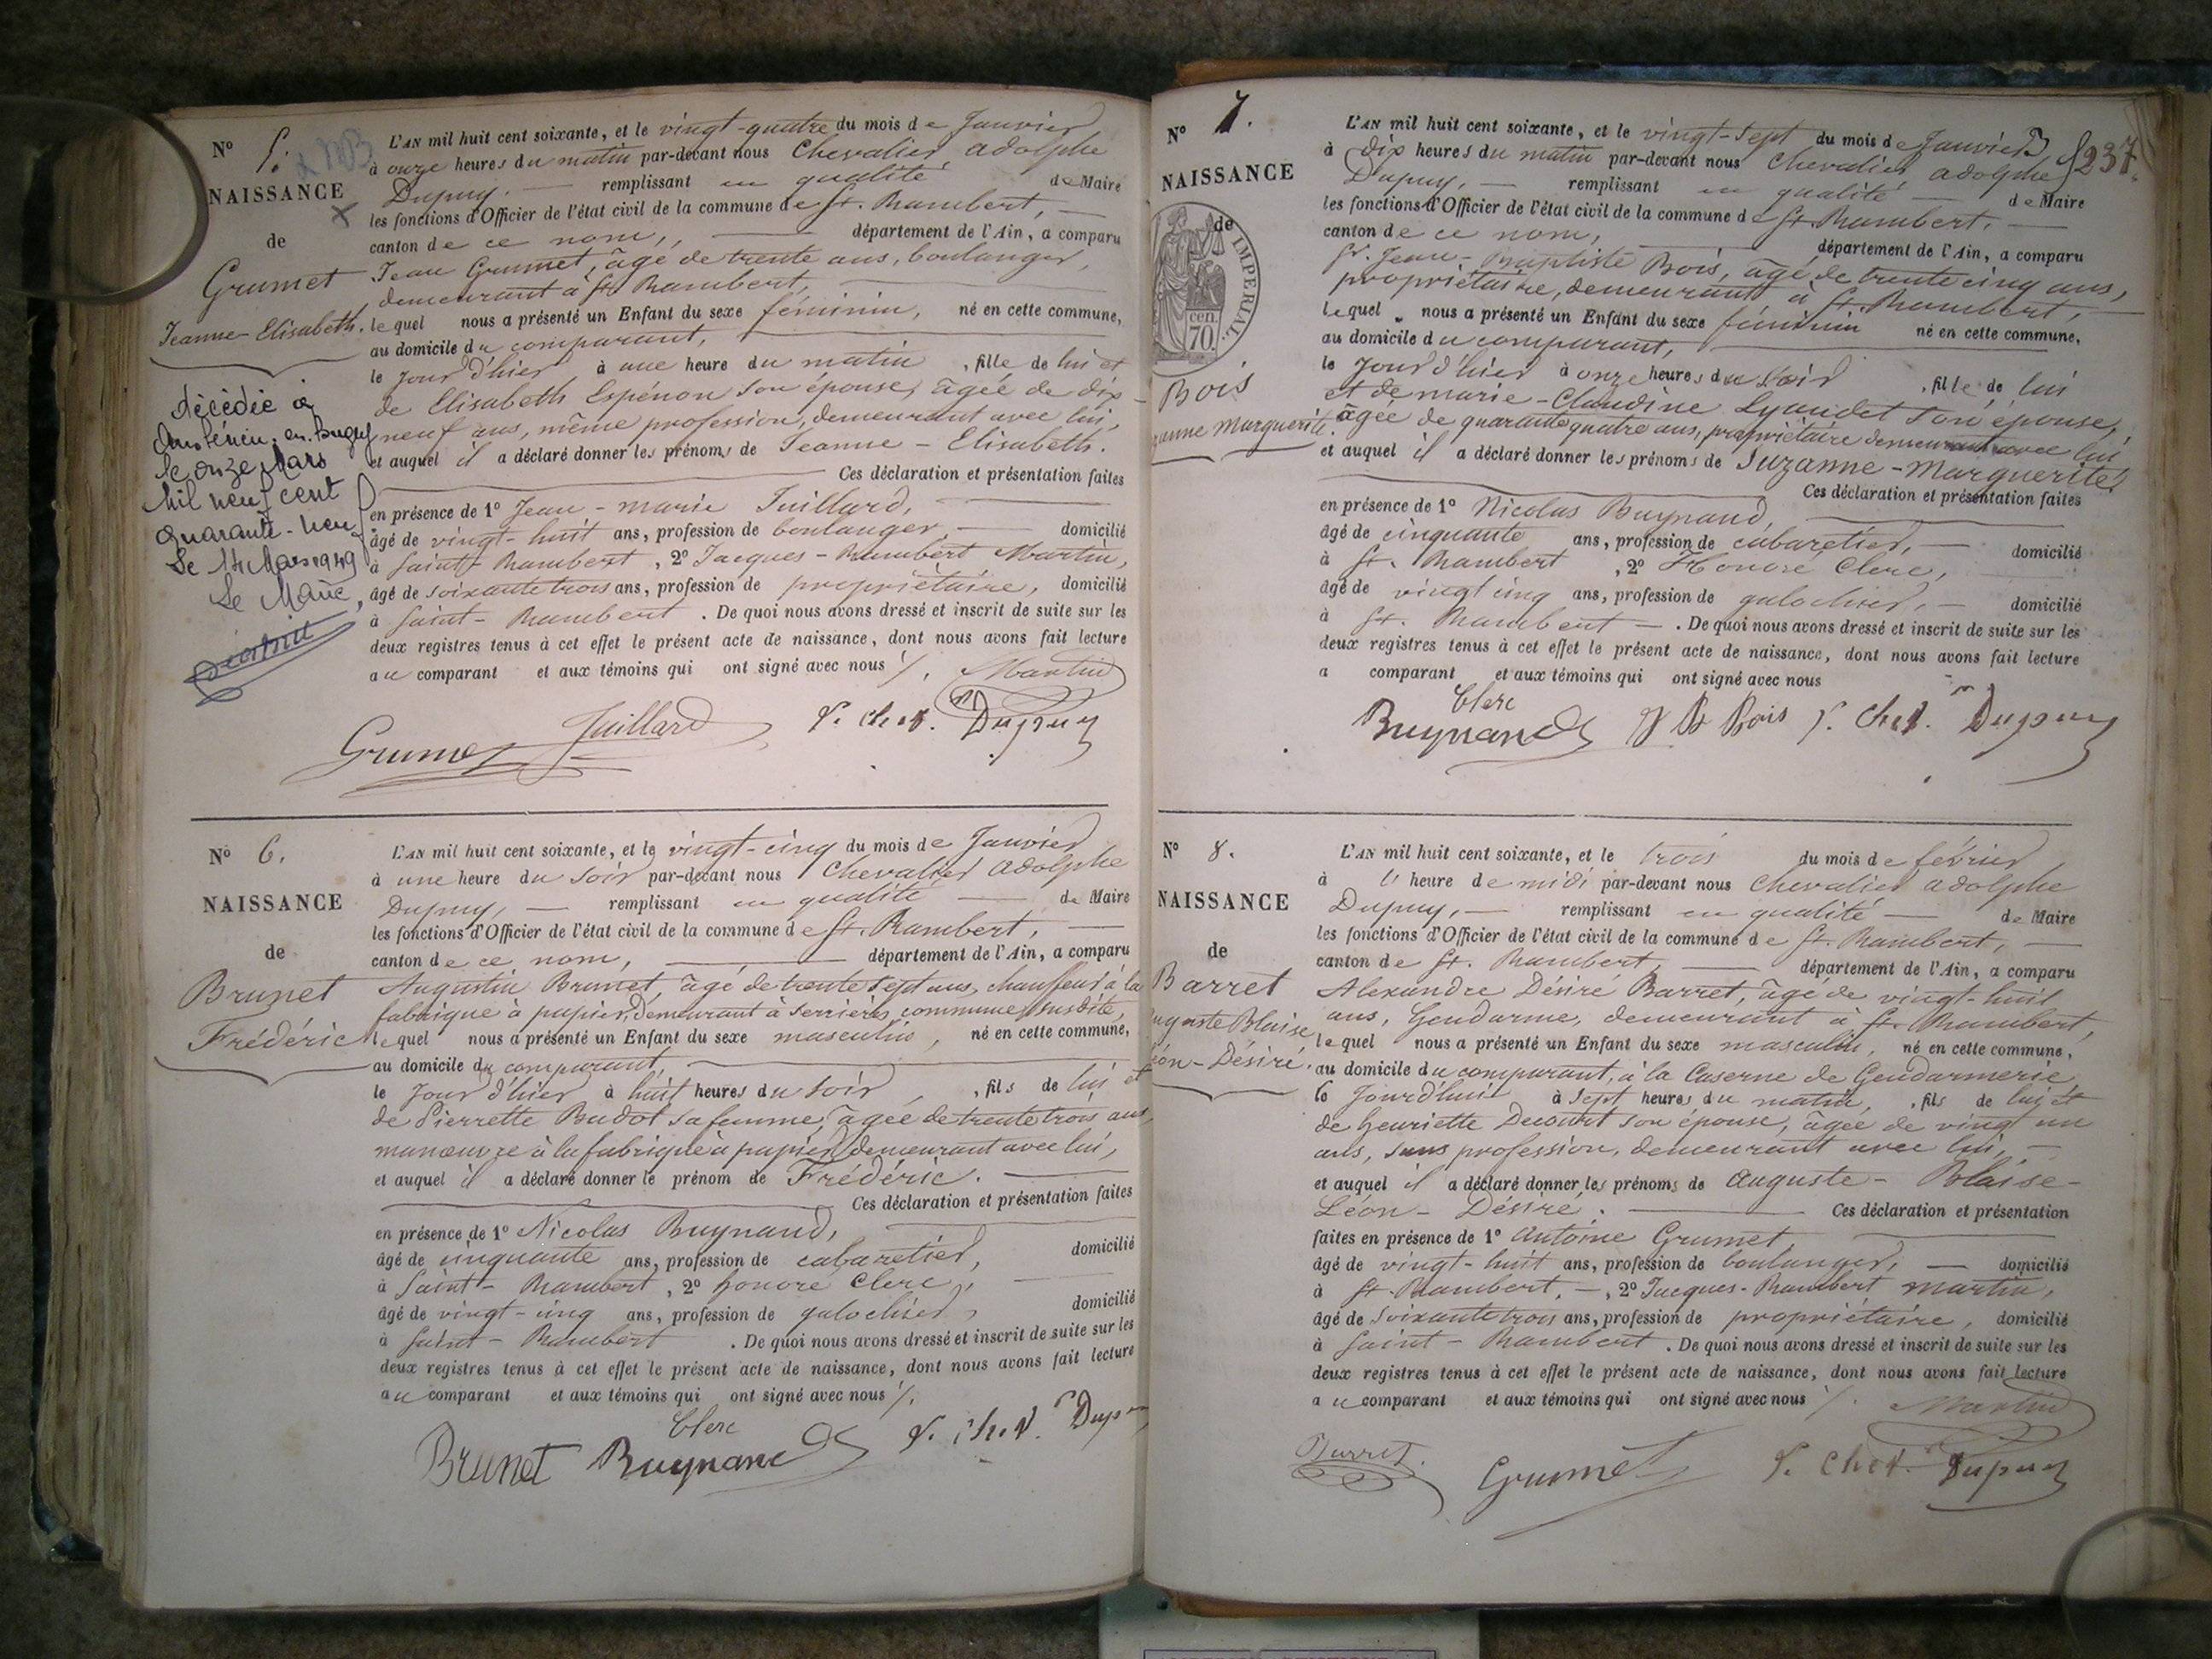 N° 5.
NAISSANCE
de
Grumet
Jeanne-Elisabeth.
décédée à
en Bugey
le onze Mars
Mil neuf cent
quarante-neuf
Le 14 Mars 1949
Le Maire,
L'AN mil huit cent soixante, et le vingt-quatre du mois de Janvier
à onze heures du matin par-devant nous Chevalier, adolphe
Dupuy, — remplissant en qualité de Maire
les fonctions d'Officier de l'état civil de la commune de St. Rambert, —
canton de ce nom, — département de l'Ain, a comparu
Jean Grumet, âgé de trente ans, boulanger,
demeurant à St. Rambert,
lequel nous a présenté un Enfant du sexe féminin, né en cette commune,
au domicile du comparant,
le jour d'hier à une heure du matin, fille de lui et
de Elisabeth Espénon son épouse, âgée de dix-
neuf ans, même profession, demeurant avec lui,
et auquel il a déclaré donner les prénoms de Jeanne-Elisabeth.
Ces déclaration et présentation faites
en présence de 1° Jean-marie Juillard,
âgé de vingt-huit ans, profession de boulanger, — domicilié
à Saint-Rambert, 2° Jacques-Rambert Martin,
âgé de soixante trois ans, profession de propriétaire, domicilié
à Saint-Rambert. De quoi nous avons dressé et inscrit de suite sur les
deux registres tenus à cet effet le présent acte de naissance, dont nous avons fait lecture
au comparant et aux témoins qui ont signé avec nous /.
Martin
Grumet Juillard Chev. Dupuy
N° 6.
NAISSANCE
de
Brunet
Frédéric
L'AN mil huit cent soixante, et le vingt-cinq du mois de Janvier
à une heure du soir par-devant nous Chevalier adolphe
Dupuy, — remplissant en qualité — de Maire
les fonctions d'Officier de l'état civil de la commune de St. Rambert, —
canton de ce nom, — département de l'Ain, a comparu
Augustin Brunet, âgé de trente sept ans, chauffeur à la
fabrique à papier, demeurant à Serrières, commune susdite,
lequel nous a présenté un Enfant du sexe masculin, né en cette commune,
au domicile du comparant,
le jour d'hier à huit heures du soir, fils de lui et
de Pierrette Budot sa femme, âgée de trente trois ans,
manœuvre à la fabrique à papier, demeurant avec lui,
et auquel il a déclaré donner le prénom de Frédéric. —
Ces déclaration et présentation faites
en présence de 1° Nicolas Buynand,
âgé de cinquante ans, profession de cabaretier, domicilié
à Saint-Rambert, 2° honoré Clerc,
âgé de vingt-cinq ans, profession de galochier, domicilié
à Saint-Rambert. De quoi nous avons dressé et inscrit de suite sur les
deux registres tenus à cet effet le présent acte de naissance, dont nous avons fait lecture
au comparant et aux témoins qui ont signé avec nous /.
Clerc
Brunet Buynand Chev. Dupuy
237.
N° 7.
NAISSANCE
de
IMPERIAL.
70 cen.
Bois
Marguerite.
L'AN mil huit cent soixante, et le vingt-sept du mois de Janvier
à dix heures du matin par-devant nous Chevalier adolphe
Dupuy, — remplissant en qualité — de Maire
les fonctions d'Officier de l'état civil de la commune de St. Rambert, —
canton de ce nom, — département de l'Ain, a comparu
Sr. Jean-Baptiste Bois, âgé de trente cinq ans,
propriétaire, demeurant à St. Rambert,
lequel nous a présenté un Enfant du sexe féminin né en cette commune,
au domicile du comparant,
le jour d'hier à onze heures du soir, fille de lui
et de marie-Claudine Lyaudet son épouse,
âgée de quarante quatre ans, propriétaire demeurant avec lui
et auquel il a déclaré donner les prénoms de Suzanne-Marguerite.
Ces déclaration et présentation faites
en présence de 1° Nicolas Buynand,
âgé de cinquante ans, profession de cabaretier, — domicilié
à St. Rambert, 2° Honoré Clerc,
âgé de vingt cinq ans, profession de galochier, — domicilié
à St. Rambert —. De quoi nous avons dressé et inscrit de suite sur les
deux registres tenus à cet effet le présent acte de naissance, dont nous avons fait lecture
a comparant et aux témoins qui ont signé avec nous
Clerc
Buynand Bois Chev. Dupuy
N° 8.
NAISSANCE
de
Barret
Auguste Blaise
Léon-Désiré.
L'AN mil huit cent soixante, et le trois du mois de février
à l'heure de midi par-devant nous Chevalier adolphe
Dupuy, — remplissant en qualité — de Maire
les fonctions d'Officier de l'état civil de la commune de St. Rambert, —
canton de St. Rambert, — département de l'Ain, a comparu
Alexandre Désiré Barret, âgé de vingt-huit
ans, Gendarme, demeurant à St. Rambert,
lequel nous a présenté un Enfant du sexe masculin, né en cette commune,
au domicile du comparant, à la Caserne de Gendarmerie,
le jourd'hui à sept heures du matin, fils de lui et
de henriette Decourt son épouse, âgée de vingt un
ans, sans profession, demeurant avec lui, —
et auquel il a déclaré donner les prénoms de auguste-Blaise-
Léon-Désiré. — Ces déclaration et présentation
faites en présence de 1° antoine Grumet
âgé de vingt-huit ans, profession de boulanger, — domicilié
à St. Rambert, —, 2° Jacques-Rambert martin,
âgé de soixante trois ans, profession de propriétaire, domicilié
à Saint-Rambert. De quoi nous avons dressé et inscrit de suite sur les
deux registres tenus à cet effet le présent acte de naissance, dont nous avons fait lecture
au comparant et aux témoins qui ont signé avec nous /.
Martin
Barret. Grumet Chev. Dupuy